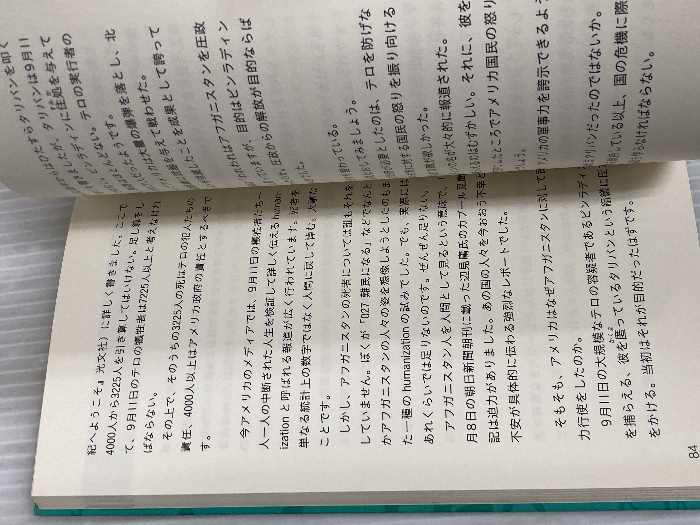 紀へようこそ』光文社）に詳しく書きました。ここで
4000人から3225人を引き算してはいけない。足し算をし
て、9月11日のテロの犠牲者は7225人以上と考えなけれ
ばならない。
その上で、そのうちの3225人の死はテロの犯人たちの
責任、4000人以上はアメリカ政府の責任とするべきで
す。
今アメリカのメディアでは、9月11日の犠牲者たち一
人一人の中断された人生を検証して詳しく伝えるhuman-
izationと呼ばれる報道が広く行われています。死者を
単なる統計上の数字ではなく人間に戻して悼む。大事な
ことです。
しかし、アフガニスタンの死者については誰もそれを
していません。ぼくが「027 難民になる」などでなんと
かアフガニスタンの人々の姿を想像しようとしたのもま
た一種のhumanizationの試みでした。でも、実際には
あれくらいでは足りないのです。ぜんぜん足りない。
アフガニスタン人を人間として見るという意味で、1
月8日の朝日新聞朝刊に載った辺見庸氏のカブール見聞
記は迫力がありました。あの国の人々を今おおう不幸と
不安が具体的に伝わる強烈なレポートでした。
そもそも、アメリカはなぜアフガニスタンに対して武
力行使をしたのか。
9月11日の大規模なテロの容疑者であるビンラディ
を捕らえる、彼を匿っているタリバンという組織に圧
をかける。当初はそれが目的だったはずです。
84
タリバンを叩く
ひたすらタリバンは9月11
ビンラディンに住処を与えて
テロの実行者の
大量の爆弾を落とし、北
えて戦わせた。
したことを成果として誇って
われはアフガニスタンを圧政
ていますが、目的はビンラディン
圧政からの解放が目的ならば
変わっている。
してみましょう。
必要としたのは、テロを防げな
対する国民の怒りを振り向ける
が欲しかった。
が大々的に報道された。
るのはむずかしい。それに、彼を
したところでアメリカ国民の怒り
しょう。
アメリカの軍事力を誇示できるよう
タリバンだったのではないか。
している以上、国の危機に際
守らなければならない。